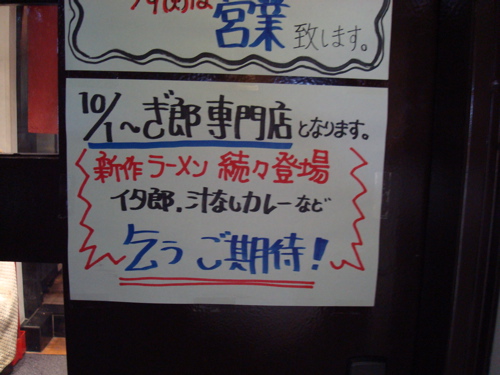 営業致します。
10/1〜ぎ郎専門店となります。
新作ラーメン続々登場
イタ郎.汁なしカレーなど
乞うご期待!